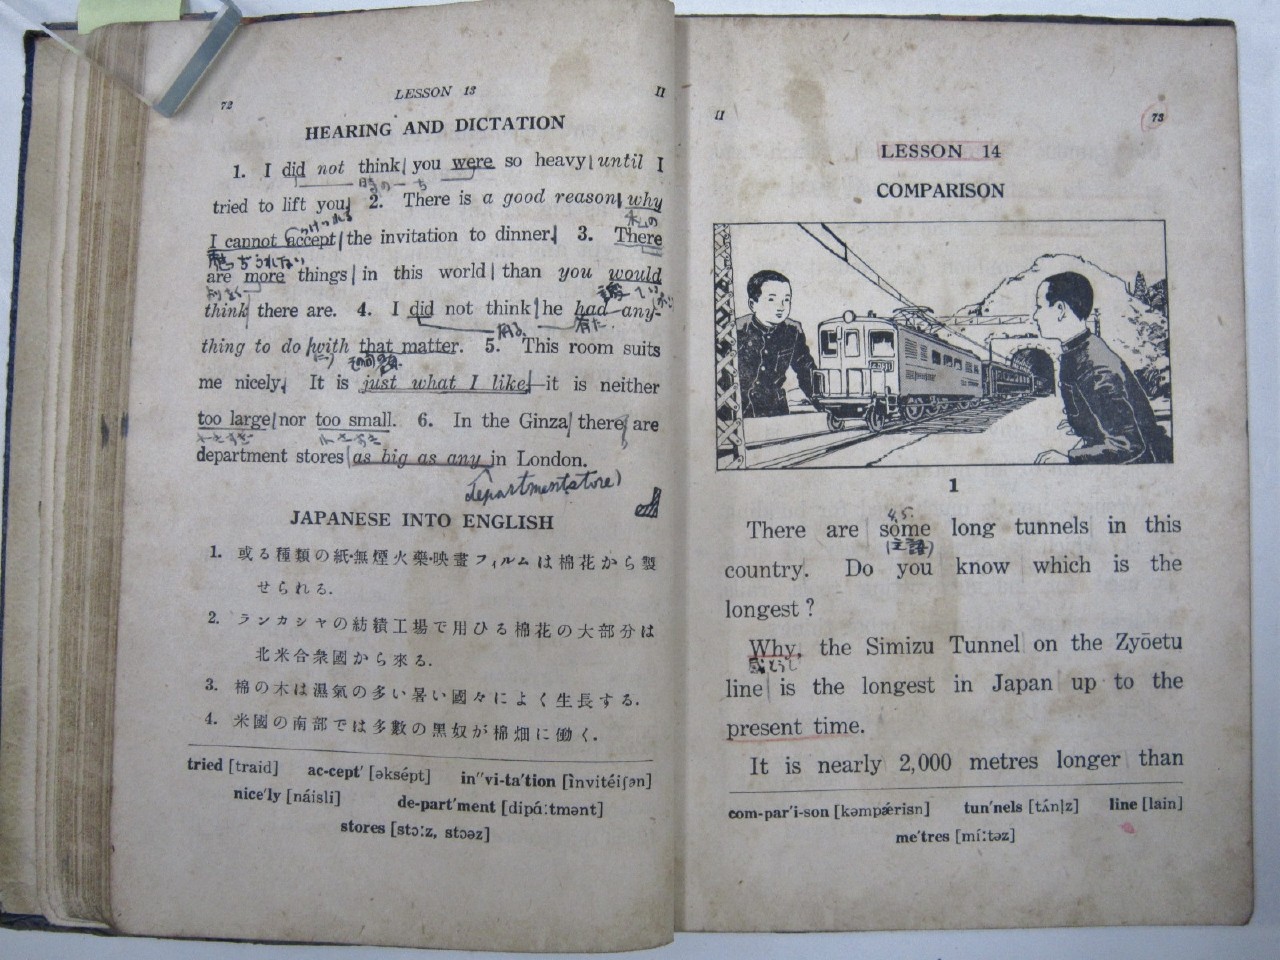 72
LESSON 13
II
HEARING AND DICTATION
1. I did not think you were so heavy until I
tried to lift you. 2. There is a good reason why
I cannot accept the invitation to dinner. 3. There
are more things in this world than you would
think there are. 4. I did not think he had any-
thing to do with that matter. 5. This room suits
me nicely. It is just what I like—it is neither
too large nor too small. 6. In the Ginza there are
department stores as big as any in London.
departmentstore)
JAPANESE INTO ENGLISH
1. 或る種類の紙・無煙火藥・映畫フィルムは棉花から製
せられる.
2. ランカシャの紡績工場で用ひる棉花の大部分は
北米合衆國から來る.
3. 棉の木は濕氣の多い暑い國々によく生長する.
4. 米國の南部では多數の黑奴が棉畑に働く.
tried [traid] ac-cept′ [əksépt] in″vi-ta′tion [ìnvitéiʃən]
nice′ly [náisli] de-part′ment [dipáːtmənt]
stores [stɔːz, stɔəz]
II
73
LESSON 14
COMPARISON
1
There are some long tunnels in this
(主語)
country. Do you know which is the
longest?
Why, the Simizu Tunnel on the Zyōetu
line is the longest in Japan up to the
present time.
It is nearly 2,000 metres longer than
com-par′i-son [kəmpǽrisn] tun′nels [tʌ́nlz] line [lain]
me′tres [míːtəz]